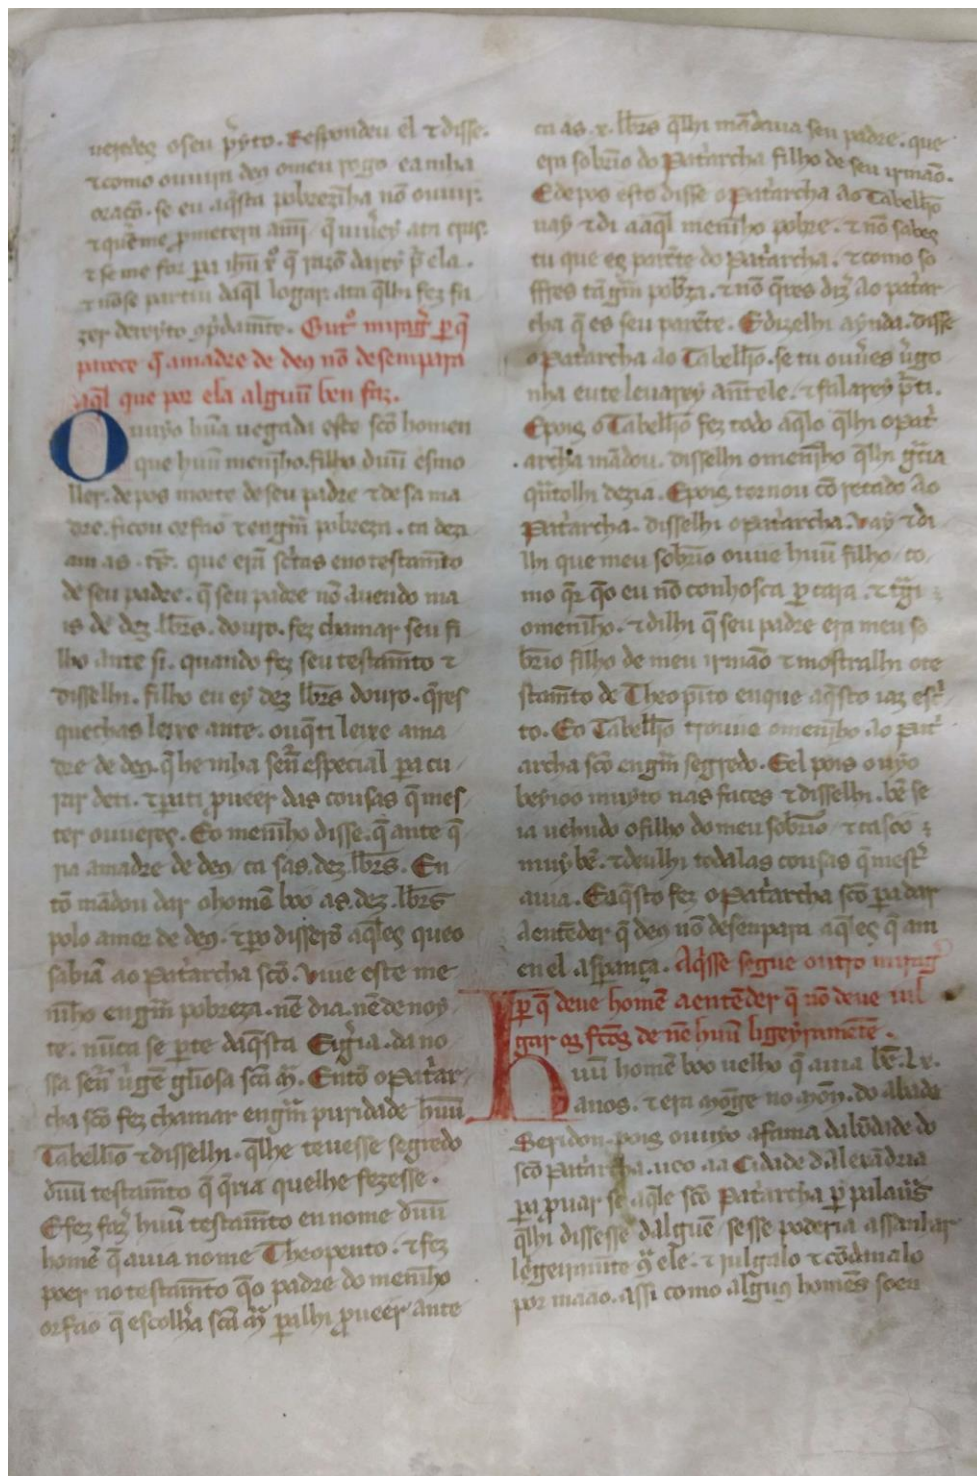 ueredes o seu p̃yto. Respondeu el ⁊ disse.
⁊ como ouuir deꝯ o meu rogo e a mĩha
oraçõ. se eu aq̃sta pobrezĩha nõ ouuir.
⁊ se me for
⁊ nõ se partiu daq̃l logar. ata q̃lhi fez fa
zer dereyto. Outͦ mirag̃ per q̃
parece q̃ a madre de deꝯ nõ desempara
aq̃l que por ela alguũ ben faz.
Ouuyo hũa uegada este sc̃o homen
que huũ menĩho. filho duũ esmo
ller. depos morte de seu padre ⁊ de sa ma
dre. ficou orfao ⁊ en gm̃ pobreza. ca dezi
am as que erã sc̃tas eno testam̃to
de seu padre. q̃ seu padre nõ auendo ma
is de dez lb̃rs. douro. fez chamar seu fi
lho ante si. quando fez seu testam̃to ⁊
disselhi. filho eu ey dez lb̃rs douro. q̃res
que chas leixe ante. ou q̃ ti leixe a ma
dre de deꝯ. q̃ he mha sen̄r especial pera cu
rar de ti. ⁊ pera ti p̃ueer das cousas q̃ mes
ter ouueres. E o menĩho disse. q̃ ante q̃
ria a madre de deꝯ ca sas. dez lb̃rs. En
tõ mãdou dar o homẽ boo as. dez. lb̃rs
polo amor de deꝯ. ⁊ p̃o disserõ aq̃les que o
sabiã ao Patͥarcha sc̃o. Viue este me
nĩho en gm̃ pobreza. nẽ dia. nẽ de noy
te. nũca se p̱te daq̃sta Eig̃ia. da no
ssa sen̄r u̓gẽ gl̃iosa sc̃a M̃. Entõ o Patͥar
cha sc̃o fez chamar en gm̃ puridade huũ
Tabelliõ ⁊ disselhi. q̃lhe teuesse segredo
duũ testam̃to q̃ q̃ria que lhe fezesse.
E fez faz̓ huũ testam̃to en nome duũ
homẽ q̃ auia nome Theopento. ⁊ fez
poer no testam̃to q̃ o padre do menĩho
orfao q̃ escolh̓a sc̃a M̃ pera lhi p̃ueer ante
ca as. x. lb̃rs q̃lhi mãdaua seu padre. que
era sobrĩo do Patͥarcha filho de seu irmão.
E depos esto disse o Patͥarcha ao Tabelliõ
uay ⁊ di a aq̃l menĩho pobre. ⁊ nõ sabes
tu que es parẽte do Patͥarcha. ⁊ como so
ffres tã gm̃ pob̓za. ⁊ nõ q̃res diz̓ ao patͥar
cha q̃ es seu parẽte. E dizelhi aynda. disse
o Patͥarcha ao Tabelliõ. se tu ouu̓es u̓go
nha eu te leuarey ant̃ ele. ⁊ falarey p̱ ti.
E pois o Tabelliõ fez todo aq̃lo q̃lhi o Patͥ
archa mãdou. disselhi o menĩho q̃lhi gͣcia
dezia. E pois tornou cõ recado ao
Patͥarcha. disselhi o Patͥarcha. Vay ⁊ di
lhi que meu sobrĩo ouue huũ filho. co
mo q̃r q̃o eu nõ conhosca p̱ cara. ⁊ tͣgi
o menĩho. ⁊ dilhi q̃ seu padre era meu so
brĩo filho de meu irmão ⁊ mostralhi o te
stam̃to de Theopẽto en que aq̃sto iaz esc̓
to. E o Tabelliõ trouue o menĩho ao Patͥ
archa sc̃o en gm̃ segredo. E el pois o uyo
beyioo muyto nas faces ⁊ disselhi. bẽ se
ia uehudo o filho do meu sobrĩo ⁊ casoo
muy bẽ. ⁊ deulhi todalas cousas q̃ mest̓
auia. E aq̃sto fez o Patͥarcha sc̃o pera dar
a entẽder q̃ deꝯ nõ desenpara aq̃les q̃ am
en el asperança. Aq̃sse segue outro mirag̃
p̱ q̃ deue homẽ a entẽder q̃ nõ deue iul
gar os fc̃os de nẽhuũ ligeyramẽte.
Huũ homẽ boo uelho q̃ auia bẽ. Lx.
anos. ⁊ era mõge no mõ. do abade
Seridon. pois ouuyo a fama da bõdade do
sc̃o Patͥarcha. ueo aa Cidade dalexãdria
pera p̃uar se aq̃le sc̃o Patͥarcha p̱ palauͣs
q̃lhi dissesse dalguẽ se sse poderia assanhar
⁊ iulgalo ⁊ cõdanalo
por maao. assi como alguꝯ homẽs soen